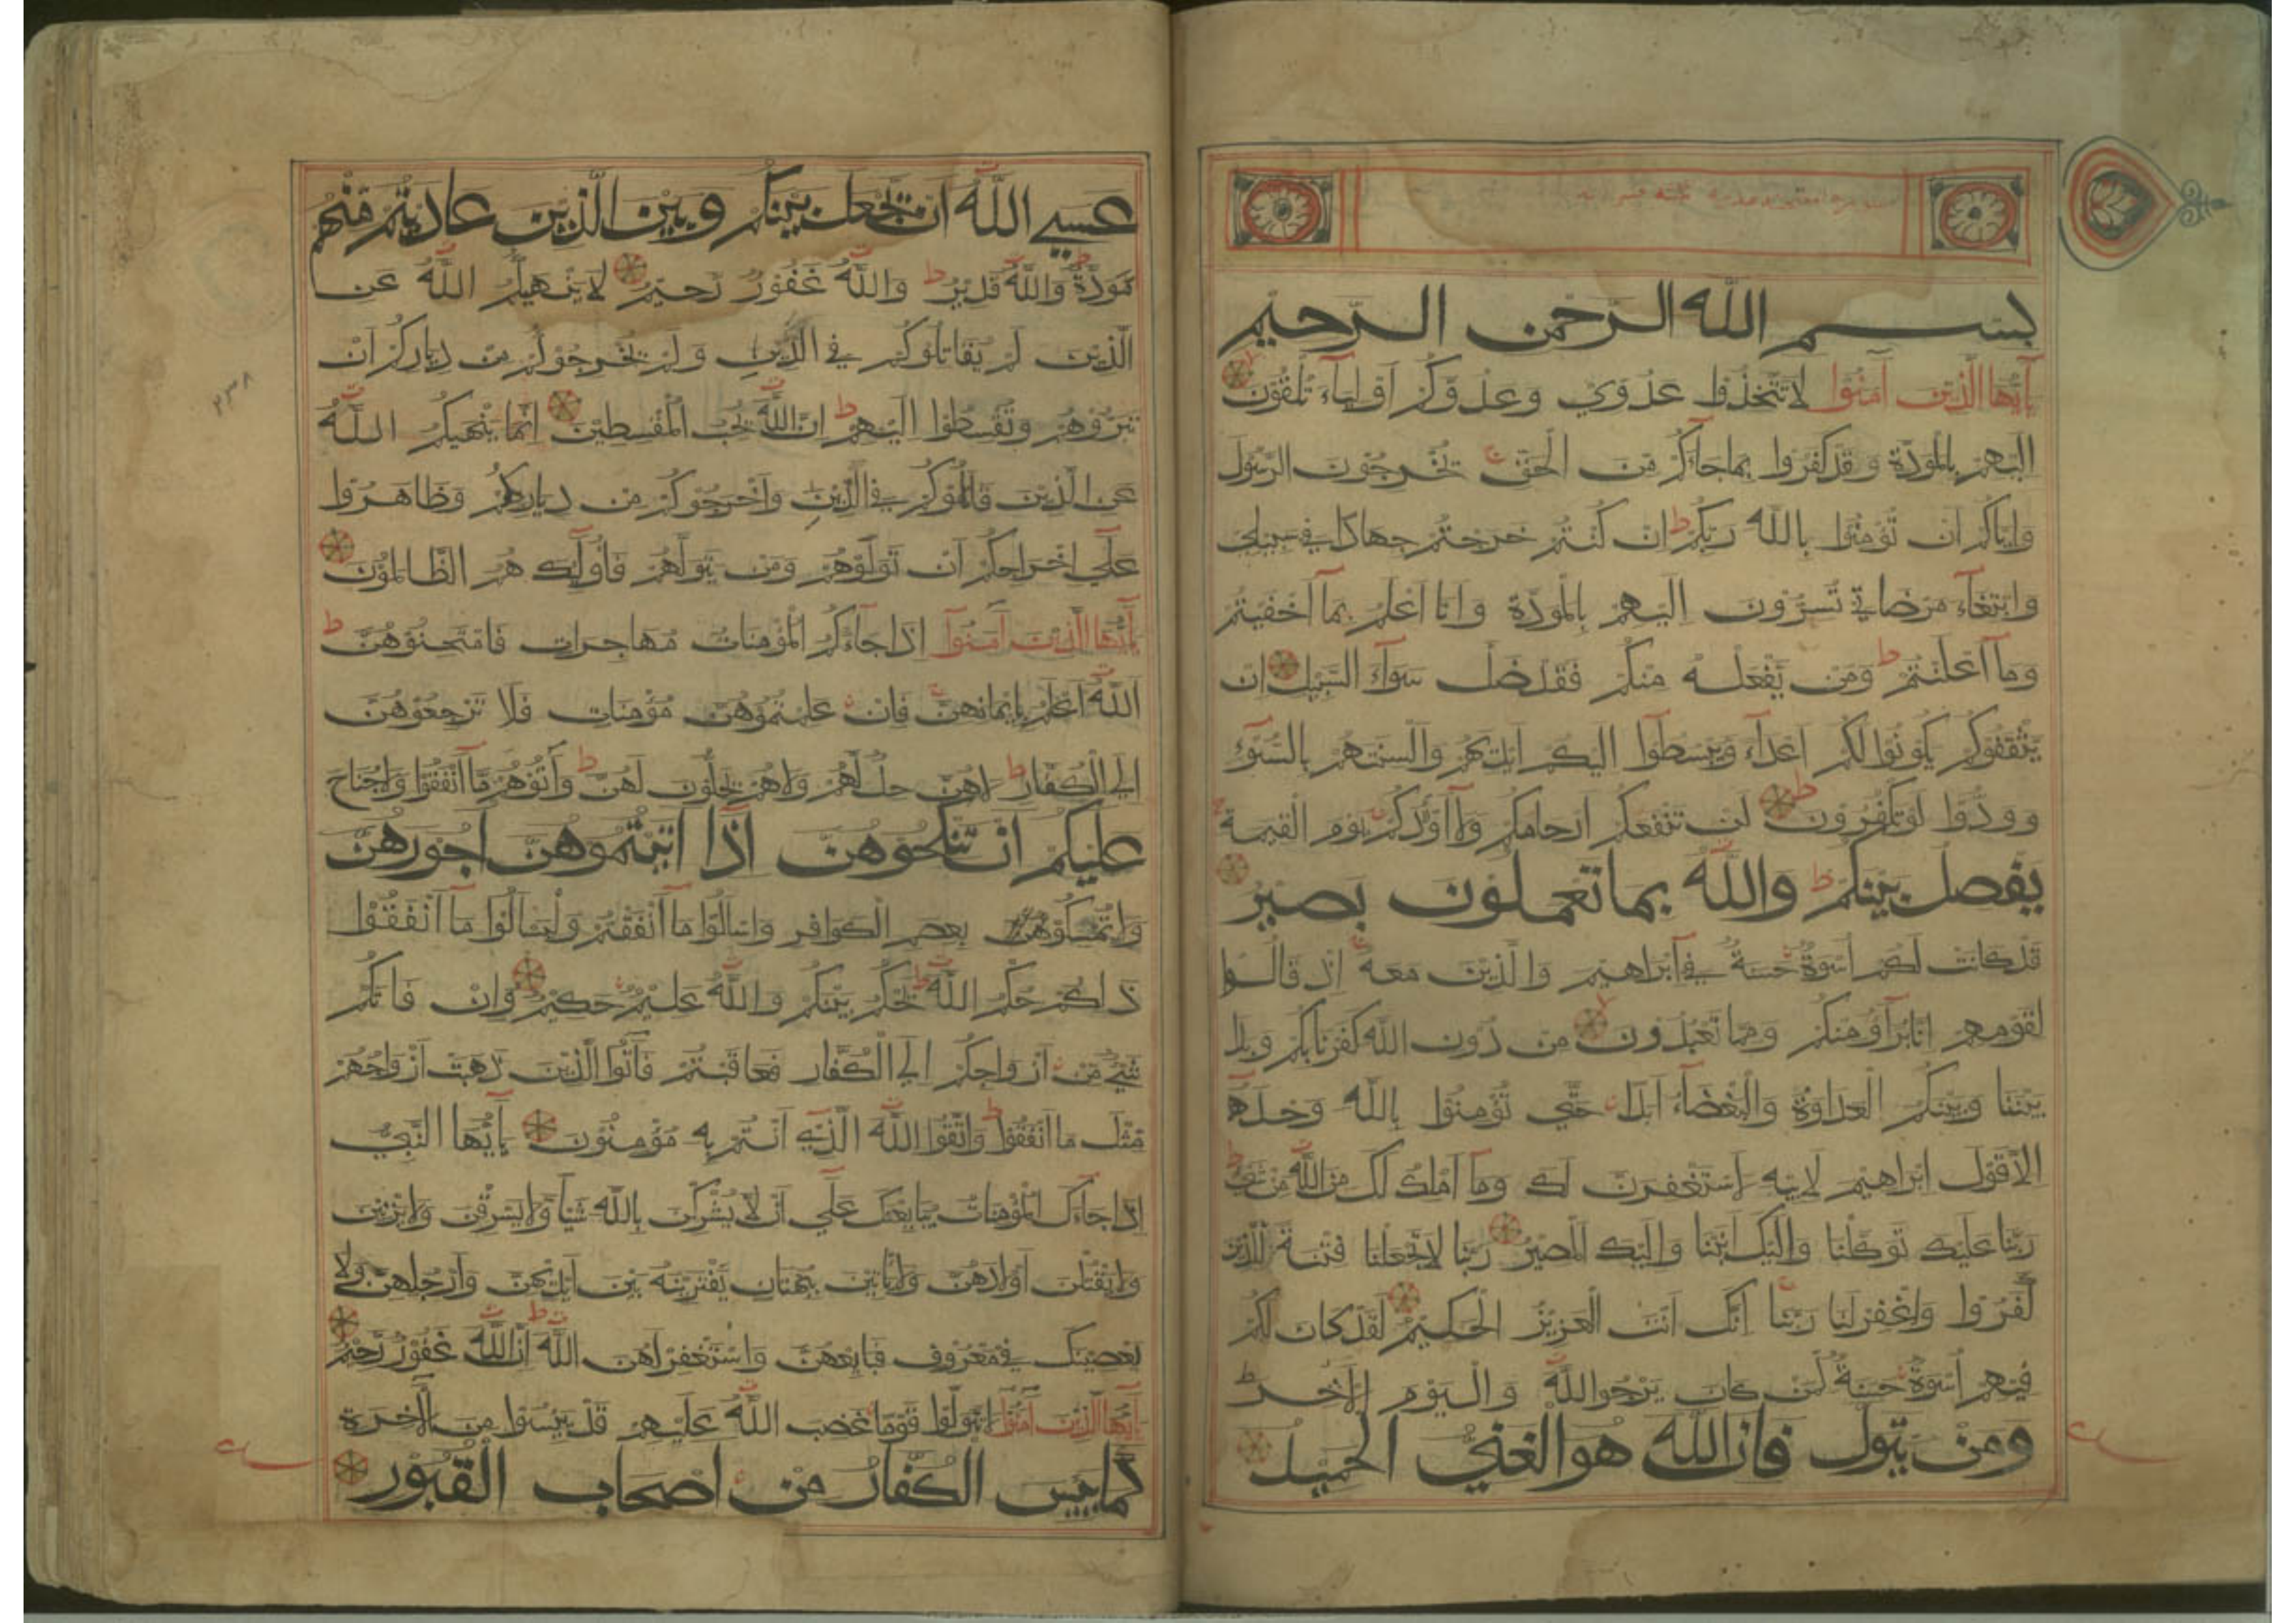 بسم الله الرحمن الرحيم
يآأيها الذين آمنوا لا تتخذوا عدوي وعدوكم أولياء تلقون
إليهم بالمودة وقد كفروا بما جاءكم من الحق يخرجون الرسول
وإياكم أن تؤمنوا بالله ربكم إن كنتم خرجتم جهادا في سبيلي
وابتغاء مرضاتي تسرون إليهم بالمودة وأنا أعلم بما أخفيتم
وما أعلنتم ومن يفعله منكم فقد ضل سواء السبيل إن
يثقفوكم يكونوا لكم أعداء ويبسطوا إليكم أيديهم وألسنتهم بالسوء
وودوا لو تكفرون لن تنفعكم أرحامكم ولا أولادكم يوم القيمة
يفصل بينكم والله بما تعملون بصير
قد كانت لكم أسوة حسنة في إبراهيم والذين معه إذ قالوا
لقومهم إنا برآؤ منكم ومما تعبدون من دون الله كفرنا بكم وبدا
بيننا وبينكم العداوة والبغضاء أبدا حتى تؤمنوا بالله وحده
إلا قول إبراهيم لأبيه لأستغفرن لك وما أملك لك من الله من شيء
ربنا عليك توكلنا وإليك أنبنا وإليك المصير ربنا لا تجعلنا فتنة للذين
كفروا واغفر لنا ربنا إنك أنت العزيز الحكيم لقد كان لكم
فيهم أسوة حسنة لمن كان يرجوا الله واليوم الآخر
ومن يتول فإن الله هو الغني الحميد
عسي الله أن يجعل بينكم وبين الذين عاديتم منهم
مودة والله قدير والله غفور رحيم لا ينهيكم الله عن
الذين لم يقاتلوكم في الدين ولم يخرجوكم من دياركم أن
تبروهم وتقسطوا إليهم إن الله يحب المقسطين إنما ينهيكم الله
عن الذين قاتلوكم في الدين وأخرجوكم من دياركم وظاهروا
علي إخراجكم أن تولوهم ومن يتولهم فأولئك هم الظالمون
يآأيها الذين آمنوا إذا جاءكم المؤمنات مهاجرات فامتحنوهن
الله أعلم بإيمانهن فإن علمتموهن مؤمنات فلا ترجعوهن
إلي الكفار لا هن حل لهم ولا هم يحلون لهن وآتوهم ما أنفقوا ولا جناح
عليكم أن تنكحوهن إذا آتيتموهن أجورهن
ولا تمسكوهن بعصم الكوافر واسألوا ما أنفقتم وليسألوا ما أنفقوا
ذلكم حكم الله يحكم بينكم والله عليم حكيم وإن فاتكم
شيء من أزواجكم إلي الكفار فعاقبتم فآتوا الذين ذهبت أزواجهم
مثل ما أنفقوا واتقوا الله الذي أنتم به مؤمنون يآأيها النبي
إذا جاءك المؤمنات يبايعنك علي أن لا يشركن بالله شيئا ولا يسرقن ولا يزنين
ولا يقتلن أولادهن ولا يأتين ببهتان يفترينه بين أيديهن وأرجلهن ولا
يعصينك في معروف فبايعهن واستغفر لهن الله إن الله غفور رحيم
يآأيها الذين آمنوا لا تتولوا قوما غضب الله عليهم قد يئسوا من الآخرة
كما يئس الكفار من أصحاب القبور
٢٣٨